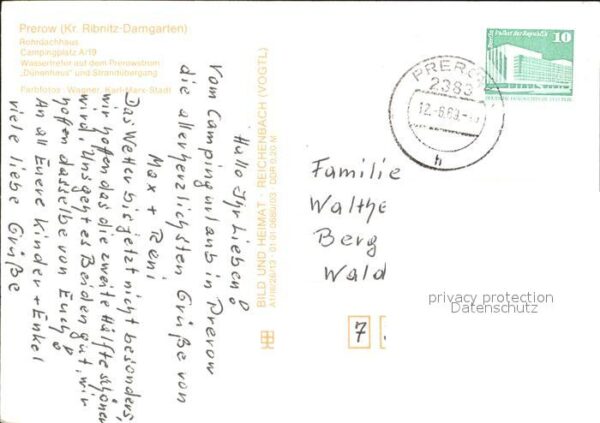 Prerow (Kr. Ribnitz-Damgarten)
Rohrdachhaus
Campingplatz A/19
Wassertreter auf dem Prerowstrom
„Dünenhaus" und Strandübergang
Farbfotos: Wagner, Karl-Marx-Stadt
Hallo Ihr Lieben!
Vom Campingurlaub in Prerow
die allerherzlichsten Grüße von
Max + Reni
Das Wetter bis jetzt nicht besonders,
wir hoffen das die zweite Hälfte schöner
wird. Uns geht es Beiden gut, wir
hoffen dasselbe von Euch!
An all Euere Kinder + Enkel
viele liebe Grüße
BILD UND HEIMAT · REICHENBACH (VOGTL)
DDR 0,20 M
PREROW
2383
h
Palast der Republik
10
Familie
Walthe
Berg
Wald
7
privacy protection
Datenschutz